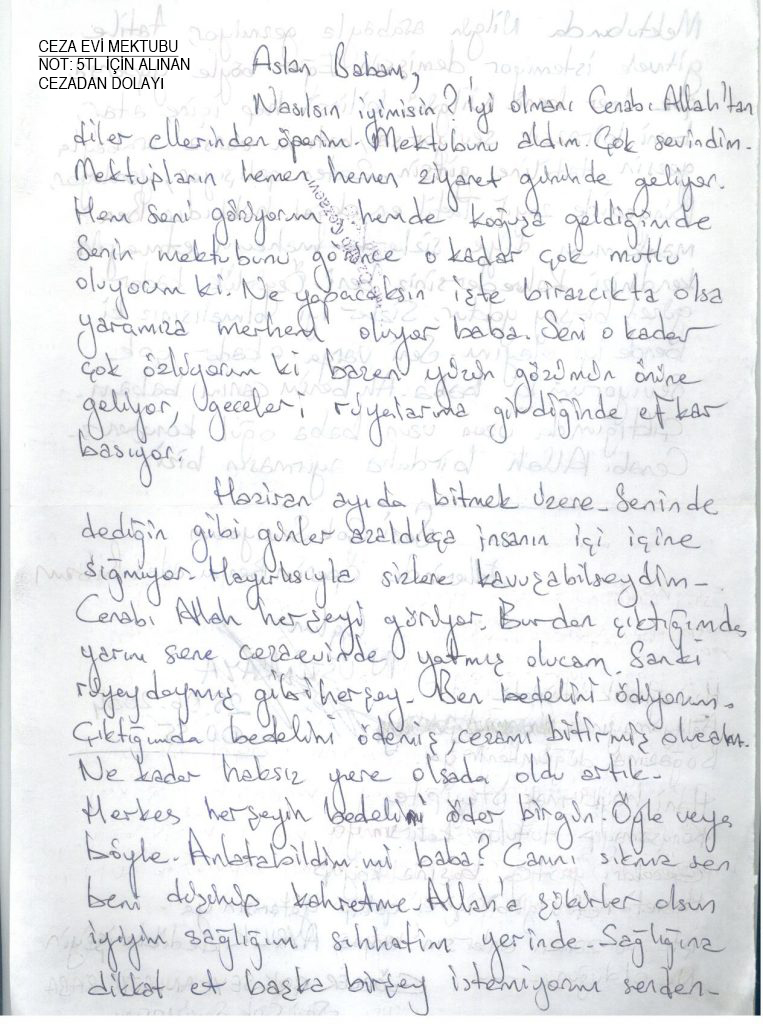 CEZA EVİ MEKTUBU
NOT: 5TL İÇİN ALINAN
CEZADAN DOLAYI
Aslan Babam,
Nasılsın iyimisin? İyi olmanı Cenabı Allah'tan
diler ellerinden öperim. Mektubunu aldım. Çok sevindim.
Mektupların hemen hemen ziyaret gününde geliyor.
Hem seni görüyorum hemde koğuşa geldiğinde
senin mektubunu görünce o kadar çok mutlu
oluyorum ki. Ne yapacaksın işte birazcıkta olsa
yaramıza merhem oluyor baba. Seni o kadar
çok özlüyorum ki bazen yüzün gözümün önüne
geliyor, geceleri rüyalarıma girdiğinde efkar
basıyor.
Haziran ayıda bitmek üzere. Seninde
dediğin gibi günler azaldıkça insanın içi içine
sığmıyor. Hayırlısıyla sizlere kavuşabilseydim.
Cenabı Allah herşeyi görüyor. Burdan çıktığımda
yarım sene cezaevinde yatmış olucam. Sanki
rüyeydaymış gibi herşey. Ben bedelini ödüyorum.
Çıktığımda bedelini ödemiş, cezamı bitirmiş olucam.
Ne kadar haksız yere olsada oldu artık.
Herkes herşeyin bedelini öder birgün. Öğle veya
böyle. Anlatabildim mi baba? Canını sıkma sen
beni düşünüp kahretme. Allah'a şükürler olsun
iyiyim sağlığım sıhhatim yerinde. Sağlığına
dikkat et başka birşey istemiyorum senden.